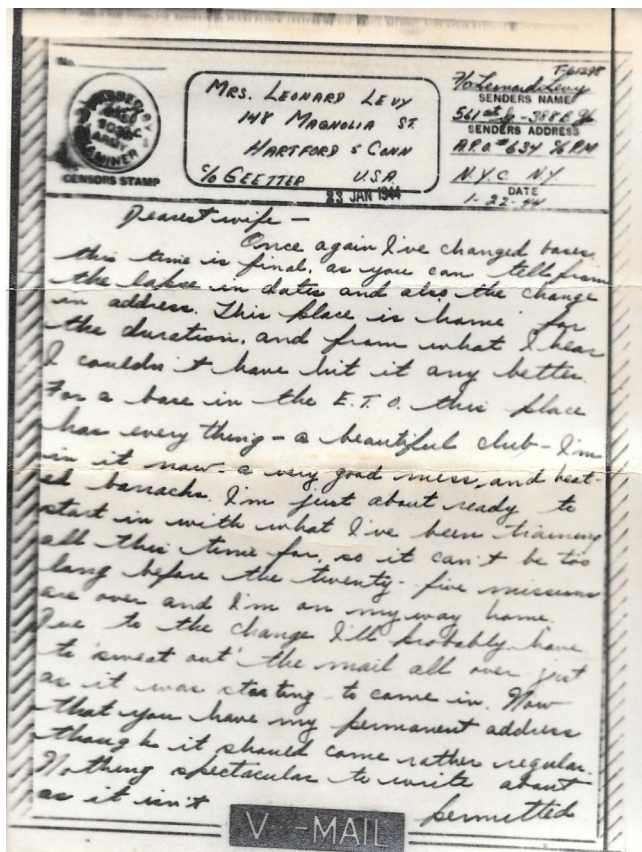 No.
PASSED BY
ARMY
EXAMINER
CENSORS STAMP
MRS. LEONARD LEVY
148 MAGNOLIA ST.
HARTFORD 5 CONN
C/O GEETTER U.S.A.
23 JAN 1944
T-61298
F/O Leonard Levy
SENDERS NAME
561st - 388 B
SENDERS ADDRESS
A.P.O # 634 % P.M
N.Y.C N.Y.
DATE
1-22-44
Dearest wife -
Once again I've changed bases,
this time is final, as you can tell from
the lapse in dates and also the change
in address. This place is 'home' for
the duration, and from what I hear
I couldn't have hit it any better.
For a base in the E.T.O. this place
has everything - a beautiful club - I'm
in it now - a very good mess, and heat-
ed barracks. I'm just about ready to
start in with what I've been training
all this time for, so it can't be too
long before the twenty-five missions
are over and I'm on my way home.
Due to the change I'll probably have
to 'sweat out' the mail all over just
as it was starting to come in. Now
that you have my permanent address
though it should come rather regular.
Nothing spectacular to write about
as it isn't permitted
V - MAIL